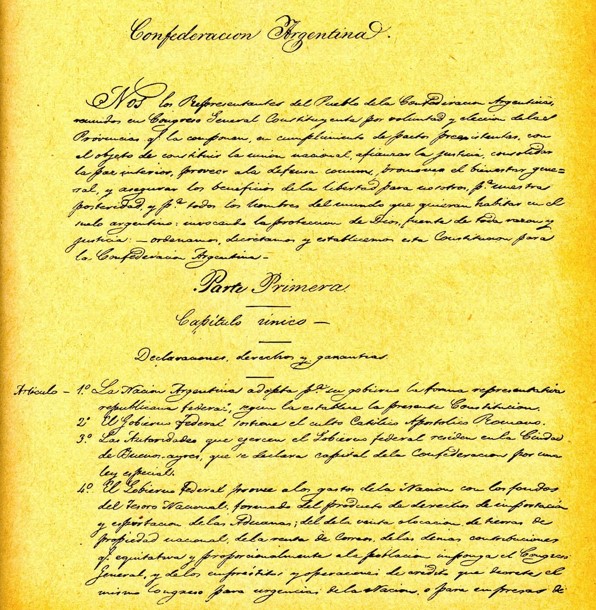 Confederacion Argentina.
Nos los Representantes del Pueblo de la Confederacion Argentina,
reunidos en Congreso General Constituyente por voluntad y eleccion de las
Provincias q.e la componen, en cumplimiento de pactos preexistentes, con
el objeto de constituir la union nacional, afianzar la justicia, consolidar
la paz interior, proveer a la defensa comun, promover el bienestar gene-
ral, y asegurar los beneficios de la libertad para nosotros, p.a nuestra
posteridad, y p.a todos los hombres del mundo que quieran habitar en el
suelo argentino: invocando la proteccion de Dios, fuente de toda razon y
justicia: — ordenamos, decretamos y establecemos esta Constitucion para
la Confederacion Argentina —
Parte Primera.
Capitulo único —
Declaraciones, derechos y garantias
Articulo — 1.º La Nacion Argentina adopta p.a su gobierno la forma representativa
republicana federal; segun la establece la presente Constitucion.
2.º El Gobierno Federal sostiene el culto Católico Apostolico Romano.
3.º Las Autoridades que ejercen el Gobierno federal residen en la Ciudad
de Buenos-ayres, que se declara capital de la Confederacion por una
ley especial.
4.º El Gobierno Federal provee a los gastos de la Nacion con los fondos
del tesoro Nacional, formado del producto de derechos de importacion
y esportacion de las Aduanas; del de la venta o locacion de tierras de
propiedad nacional, de la renta de Correos, de las demas contribuciones
q.e equitativa y proporcionalmente a la poblacion imponga el Congreso
General, y de los empréstitos y operaciones de crédito que decrete el
mismo Congreso para urgencias de la Nacion, o para empresas de